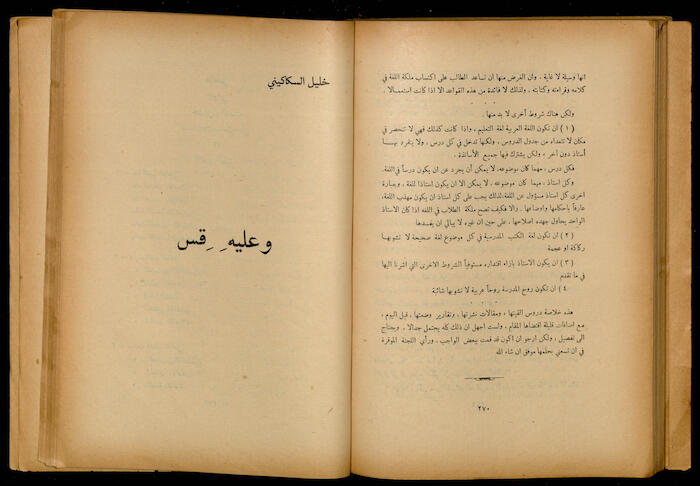 انها وسيلة لا غاية ، وان الغرض منها ان تساعد الطالب على اكتساب ملكة اللغة في
كلامه وقراءته وكتابته ، ولذلك لا فائدة من هذه القواعد الا اذا كانت استعمالا .
ولكن هناك شروط أخرى لا بد منها .
( ١ ) ان تكون اللغة العربية لغة التعليم ، واذا كانت كذلك فهي لا تنحصر في
مكان لا تتعداه من جدول الدروس ، ولكنها تدخل في كل درس ، ولا ينفرد بها
أستاذ دون آخر ، ولكن يشترك فيها جميع الأساتذة .
فكل درس ، مهما كان موضوعه، لا يمكن أن يجرد عن ان يكون درساً في اللغة.
وكل استاذ ، مهما كان موضوعه، لا يمكن الا ان يكون استاذا للغة ، وبعبارة
اخرى كل استاذ مسؤول عن اللغة، لذلك يجب على كل استاذ ان يكون مهذب اللغة،
عارفاً باحكامها واوضاعها . والا فكيف تصح ملكة الطلاب في اللغه اذا كان الاستاذ
الواحد يحاول جهده اصلاحها ، على حين ان غيره لا يبالي ان يفسدها
( ٢ ) ان تكون لغة الكتب المدرسية في كل موضوع لغة صحيحة لا تشوبها
ركاكة او عجمة
( ٣ ) ان يكون الاستاذ بازاء اقتداره مستوفياً الشروط الاخرى التي اشرنا اليها
في ما تقدم
٤ ) ان تكون روح المدرسة روحاً عربية لا تشوبها شائبة
هذه خلاصة دروس القيتها ، ومقالات نشرتها ، وتقارير وضعتها ، قبل اليوم ،
مع اضافات قليلة اقتضاها المقام ، ولست اجهل ان ذلك كله يحتمل جدالا ، ويحتاج
الى تفصيل ، ولكن ارجو ان اكون قد قمت ببعض الواجب ، ورأي اللجنة الموقرة
في ان تسعني بحلمها موفق ان شاء الله
٢٧٠
خليل السكاكيني
وعليهِ قس